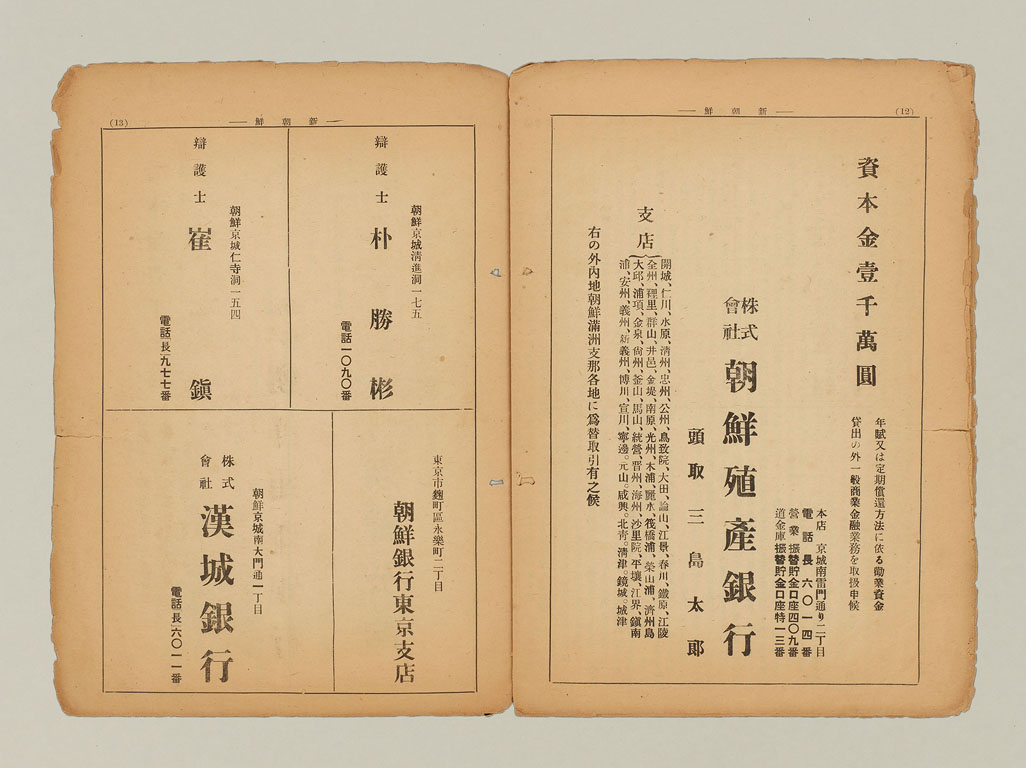 (12)
新朝鮮
資本金壹千萬圓
年賦又は定期償還方法に依る勸業資金
貸出の外一般商業金融業務を取扱申候
本店 京城南雷門通り二丁目
電話長六〇一四番
營業振替貯金口座四〇九番
道金庫振替貯金口座特一三番
株式
會社
朝鮮殖產銀行
頭取三島太郎
支店
開城、仁川、水原、清州、忠州、公州、鳥致院、大田、論山、江景、春川、鐵原、江陵
全州、裡里、群山、井邑、金堤、南原、光州、木浦、麗水、筏橋浦、榮山浦、濟州島
大邱、浦項、金泉、尙州、釜山、馬山、統營、晋州、海州、沙里院、平壤、江界、鎭南
浦、安州、義州、新義州、博川、宣川、寧邊。元山。咸興。北靑。淸津。鏡城。城津
右の外內地朝鮮滿洲支那各地に爲替取引有之候
(13)
新朝鮮
朝鮮京城淸進洞一七五
辯護士 朴勝彬
電話一〇九〇番
朝鮮京城仁寺洞一五四
辯護士 崔鎭
電話(長)九七七番
東京市麴町區永樂町二丁目
朝鮮銀行東京支店
朝鮮京城南大門通一丁目
株式
會社
漢城銀行
電話(長)六〇一一番